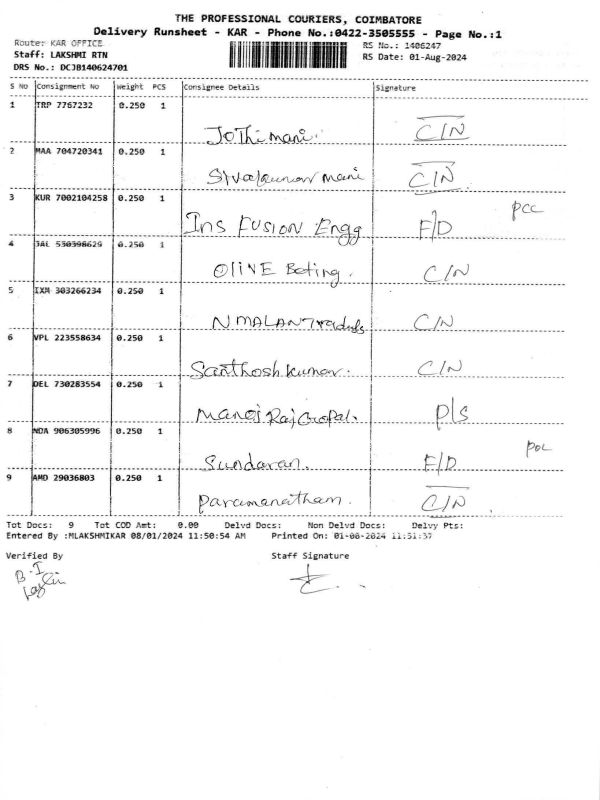 THE PROFESSIONAL COURIERS, COIMBATORE
Delivery Runsheet - KAR - Phone No.:0422-3505555 - Page No.:1
Route: KAR OFFICE
RS No.: 1406247
Staff: LAKSHMI RTN
RS Date: 01-Aug-2024
DRS No.: DCJB140624701
S No Consignment No Weight PCS Consignee Details Signature
1 TRP 7767232 0.250 1
JoThimani. C/N
2 MAA 704720341 0.250 1
Sivakumar mani C/N
3 KUR 7002104258 0.250 1 pcc
Ins FUSION Engg F/D
4 JAL 530398629 0.250 1
OliVE Beting. C/N
5 IXM 303266234 0.250 1
NMALAN C/N
6 VPL 223558634 0.250 1
Santhosh kumar. C/N
7 DEL 730283554 0.250 1
Manoj RajGopal. P/S
8 NDA 906305996 0.250 1 POL
Sundaran. F/D
9 AMD 29036803 0.250 1
Paramanatham. C/N
Tot Docs: 9 Tot COD Amt: 0.00 Delvd Docs: Non Delvd Docs: Delvy Pts:
Entered By :MLAKSHMIKAR 08/01/2024 11:50:54 AM Printed On: 01-08-2024 11:51:37
Verified By Staff Signature
B.I